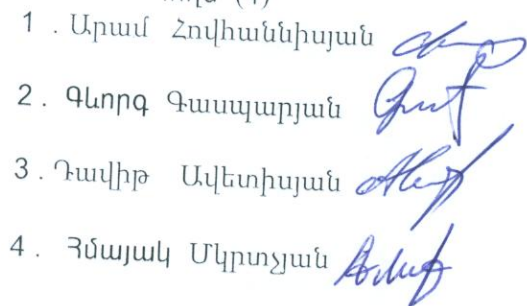 (4)
1 . Արամ Հովհաննիսյան
2 . Գևորգ Գասպարյան
3 . Դավիթ Ավետիսյան
4 . Հմայակ Մկրտչյան